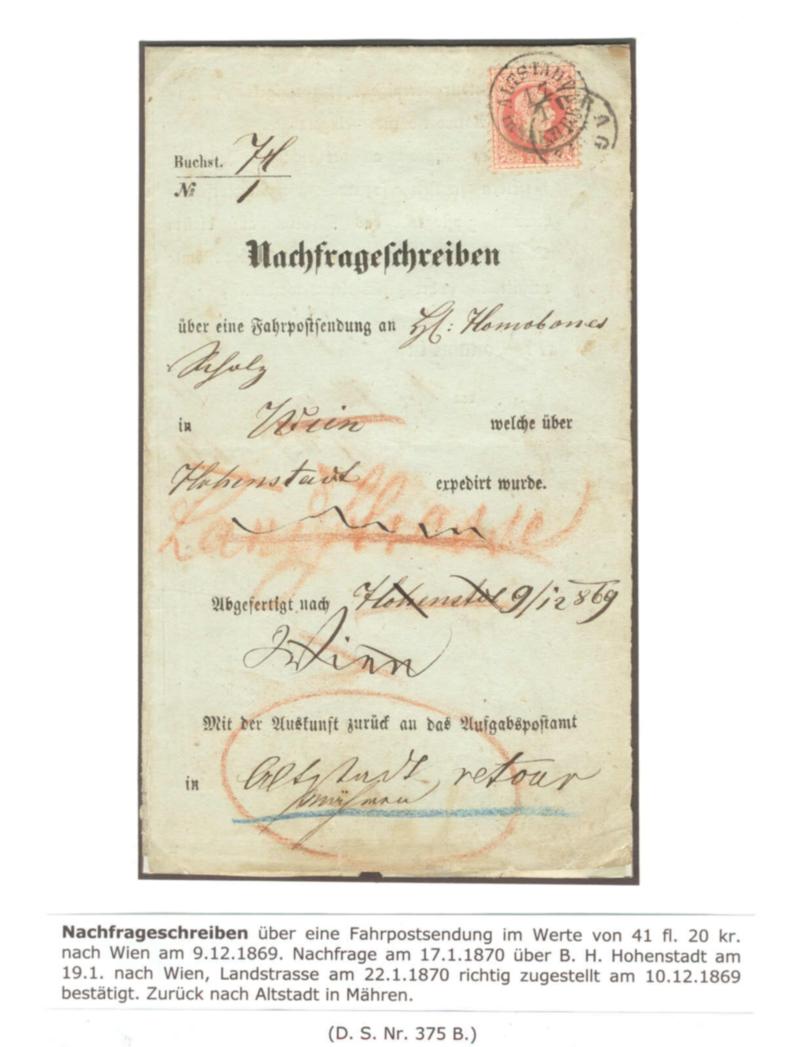 ALTSTADT
17
1
PRAG
Buchst. H
№ 1
Nachfrageschreiben
über eine Fahrpostsendung an H: Homobones
Scholz
in Wein welche über
Hohenstadt expedirt wurde.
Landstrasse
Abgefertigt nach Hohenstdt 9/12 869
Wien
Mit der Auskunft zurück an das Aufgabspostamt
in Altstadt retour
Mähren
Nachfrageschreiben über eine Fahrpostsendung im Werte von 41 fl. 20 kr.
nach Wien am 9.12.1869. Nachfrage am 17.1.1870 über B. H. Hohenstadt am
19.1. nach Wien, Landstrasse am 22.1.1870 richtig zugestellt am 10.12.1869
bestätigt. Zurück nach Altstadt in Mähren.
(D. S. Nr. 375 B.)